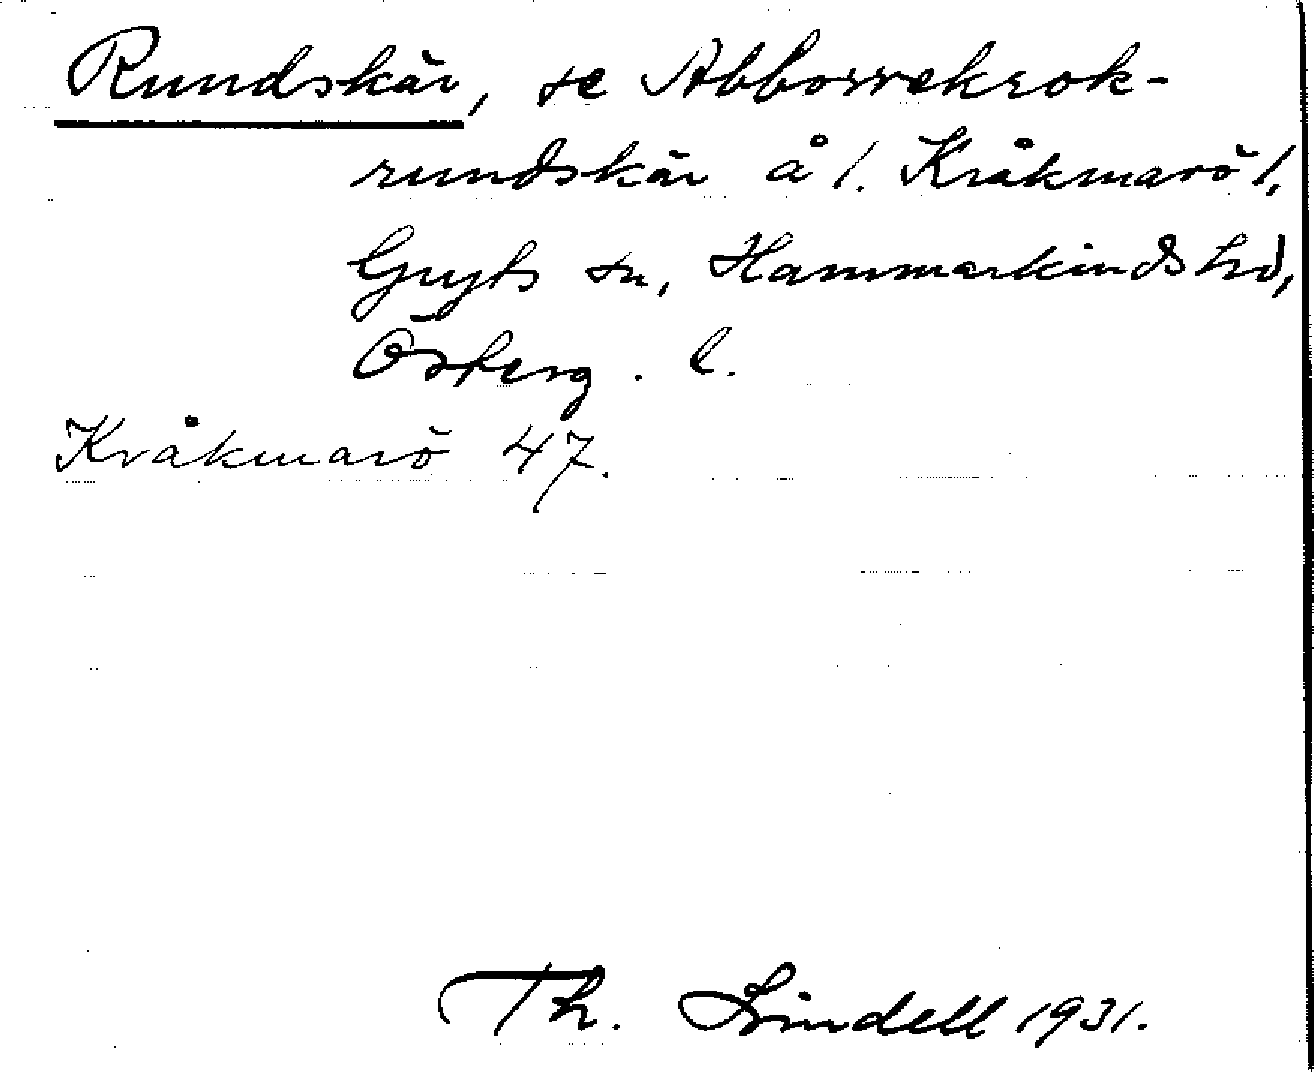 Rundskär, se Abborrekrok-
rundskär å /. Kråkmarö /,
Gryts sn, Hammarkinds hd,
Österg. l.
Kråkmarö 47.
Th. Lindell 1931.